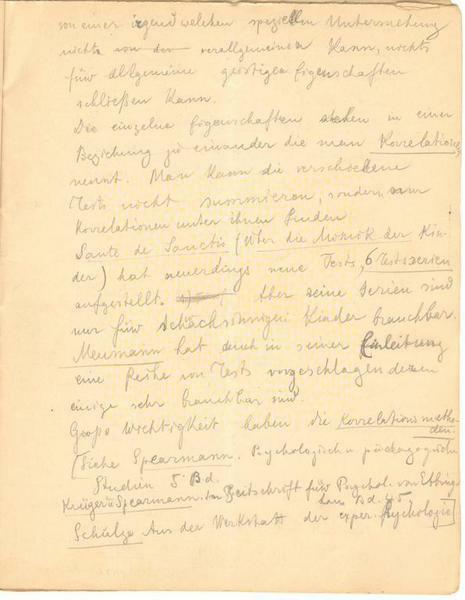 von einer irgend welchen speziellen Untersuchung
nichts von der verallgemeinen kann, nichts
für allgemeine geistige Eigenschaften
schließen kann.
Die einzelne Eigenschaften stehen in einer
Beziehung zu einander die man Korrelation
nennt. Man kann die verschiedene
Tests nicht summieren, sondern nur
Korrelationen unter ihnen finden
Sante de Sanctis (Über die der Kin-
der) hat neuerdings neue Tests, 6 Testserien
aufgestellt. Aber seine Serien sind
nur für Kinder brauchbar.
Meumann hat auch in seiner Einleitung
eine Reihe von Tests vorgeschlagen denen
einige sehr brauchbar sind.
Große Wichtigkeit haben die Korrelationsmetho-
den.
(Siehe Spearmann. Psychologisch u pädagogische
Studien 5 Bd.
Krüger u Spearmann. In Zeitschrift für Psychol. von Ebbing-
haus Bd. 45.
Schulze Aus der Werkstatt der exper. Psychologie)